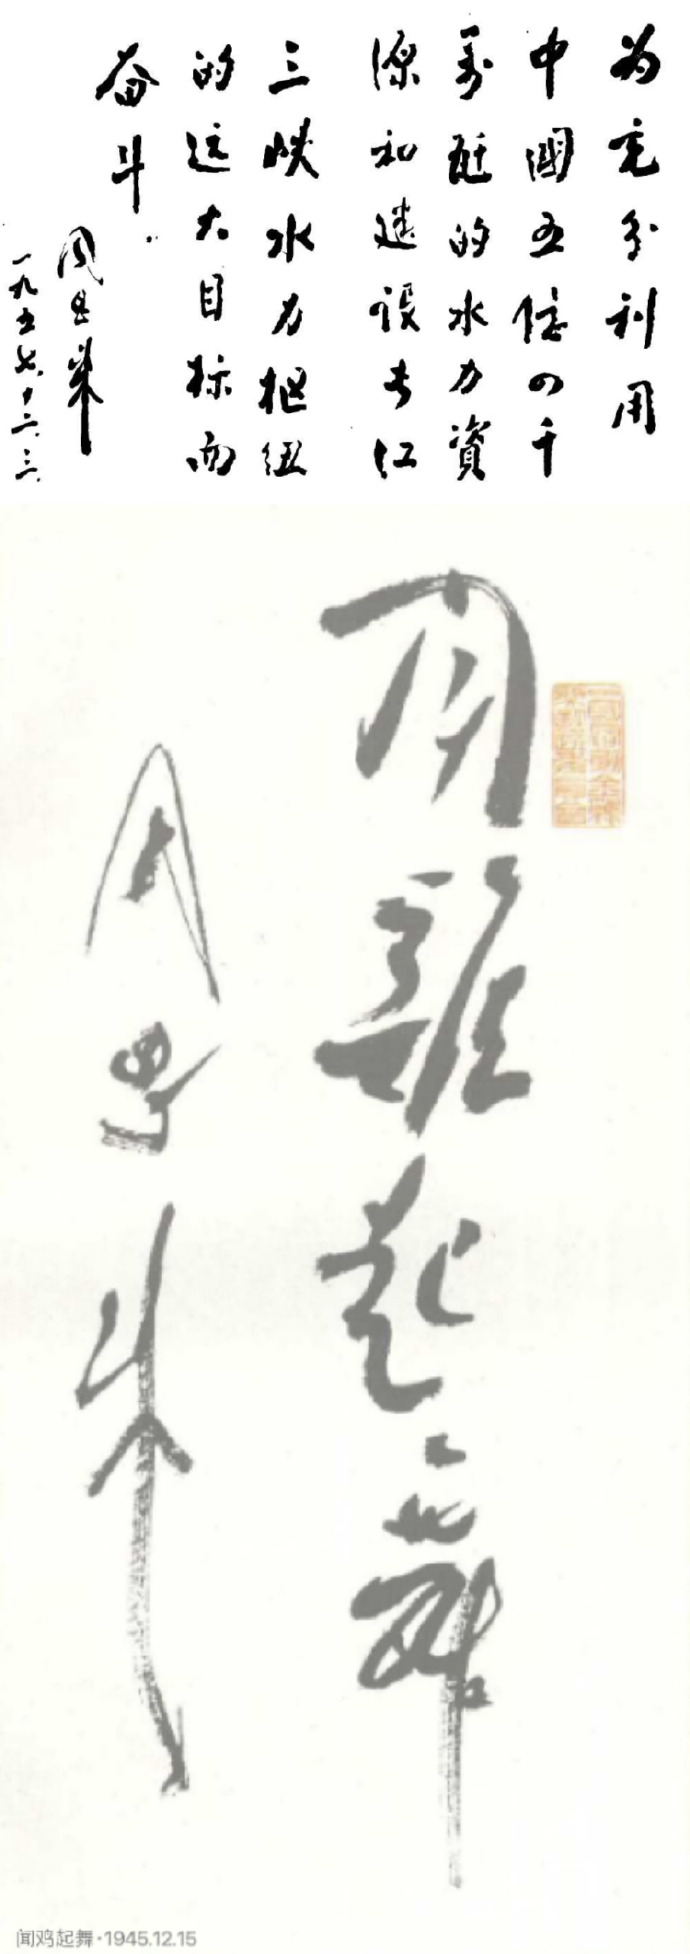 为充分利用
中國五億四千
萬瓩的水力資
源和建設长江
三峡水力枢纽
的远大目标而
奋斗。
周恩来
一九五七、十二、三、
闻鸡起舞
周恩来
闻鸡起舞·1945.12.15